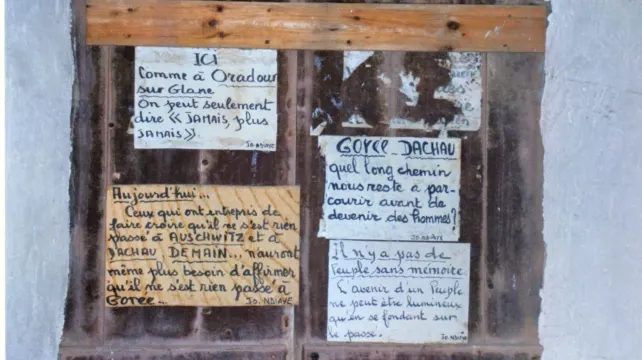 ICI
Comme à Oradour
sur Glane
On peut seulement
dire « JAMAIS, plus
JAMAIS »!
Jo. NDIAYE
GOREE - DACHAU
quel long chemin
nous reste à par-
courir avant de
devenir des hommes?
Jo. NDIAYE
Aujourd'hui...
Ceux qui ont entrepris de
faire croire qu'il ne s'est rien
passé à AUSCHWITZ et à
DACHAU DEMAIN... n'auront
même plus besoin d'affirmer
qu'il ne s'est rien passé à
GOREE..
Jo. NDIAYE
Il n'y a pas de
Peuple sans mémoire.
L'avenir d'un Peuple
ne peut être lumineux
qu'en se fondant sur
le passé.
Jo. NDIAYE